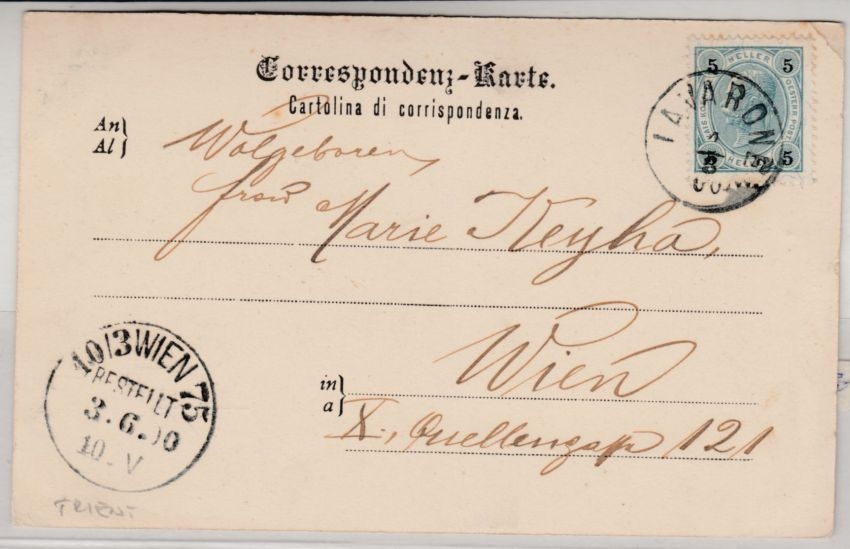 Correspondenz-Karte.
Cartolina di corrispondenza.
An
Al
Wolgeboren,
Frau
Marie Keyha,
in
a
Wien
X., Quellengasse 121
5 HELLER 5
KAIS. KÖN. OESTERR. POST
5
HELLER
LAVARONE
10/3 WIEN 75
BESTELLT
3.6.00
10.V
TRIENT